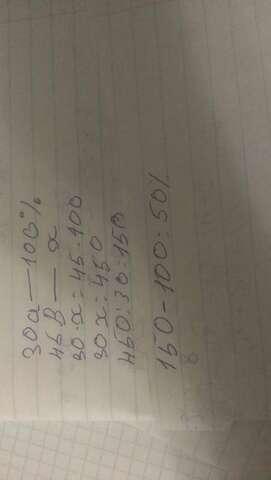 30а — 100%
45В — х
30·х=45·100
30х=450
450:30=150
150-100=50%